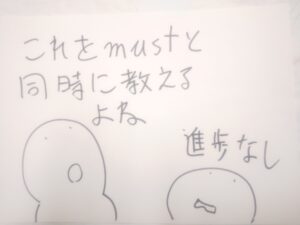 これをmustと
同時に教える
よね
進歩なし